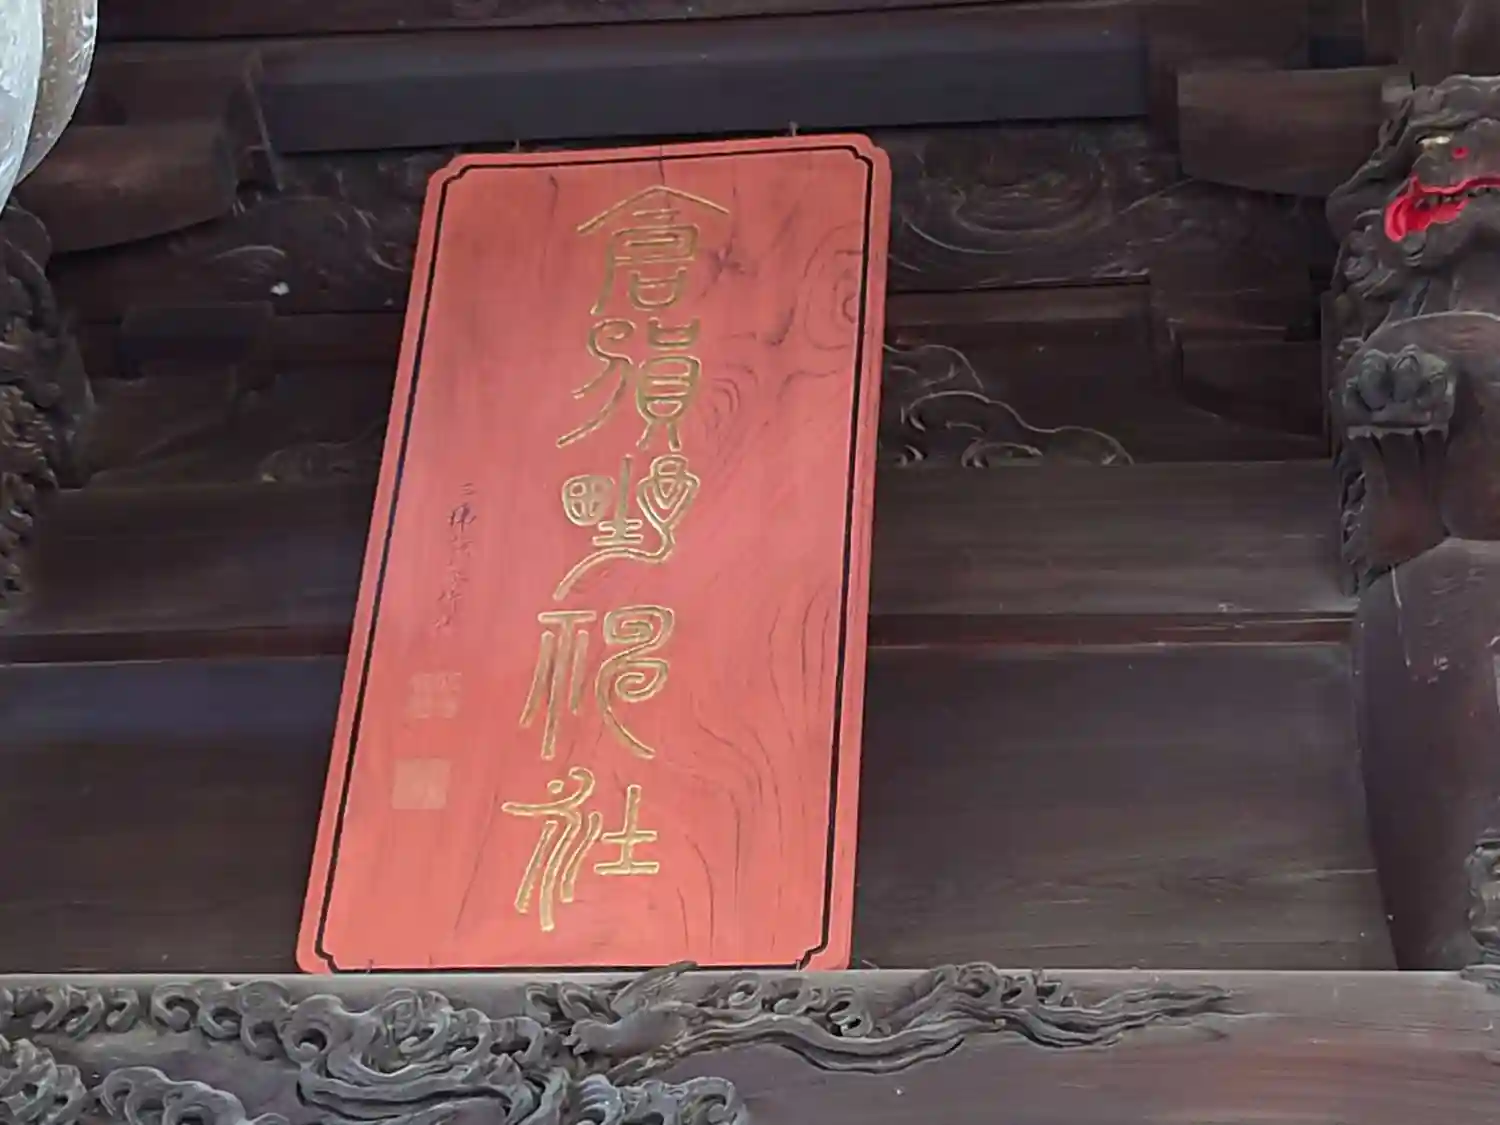 倉賀野神社